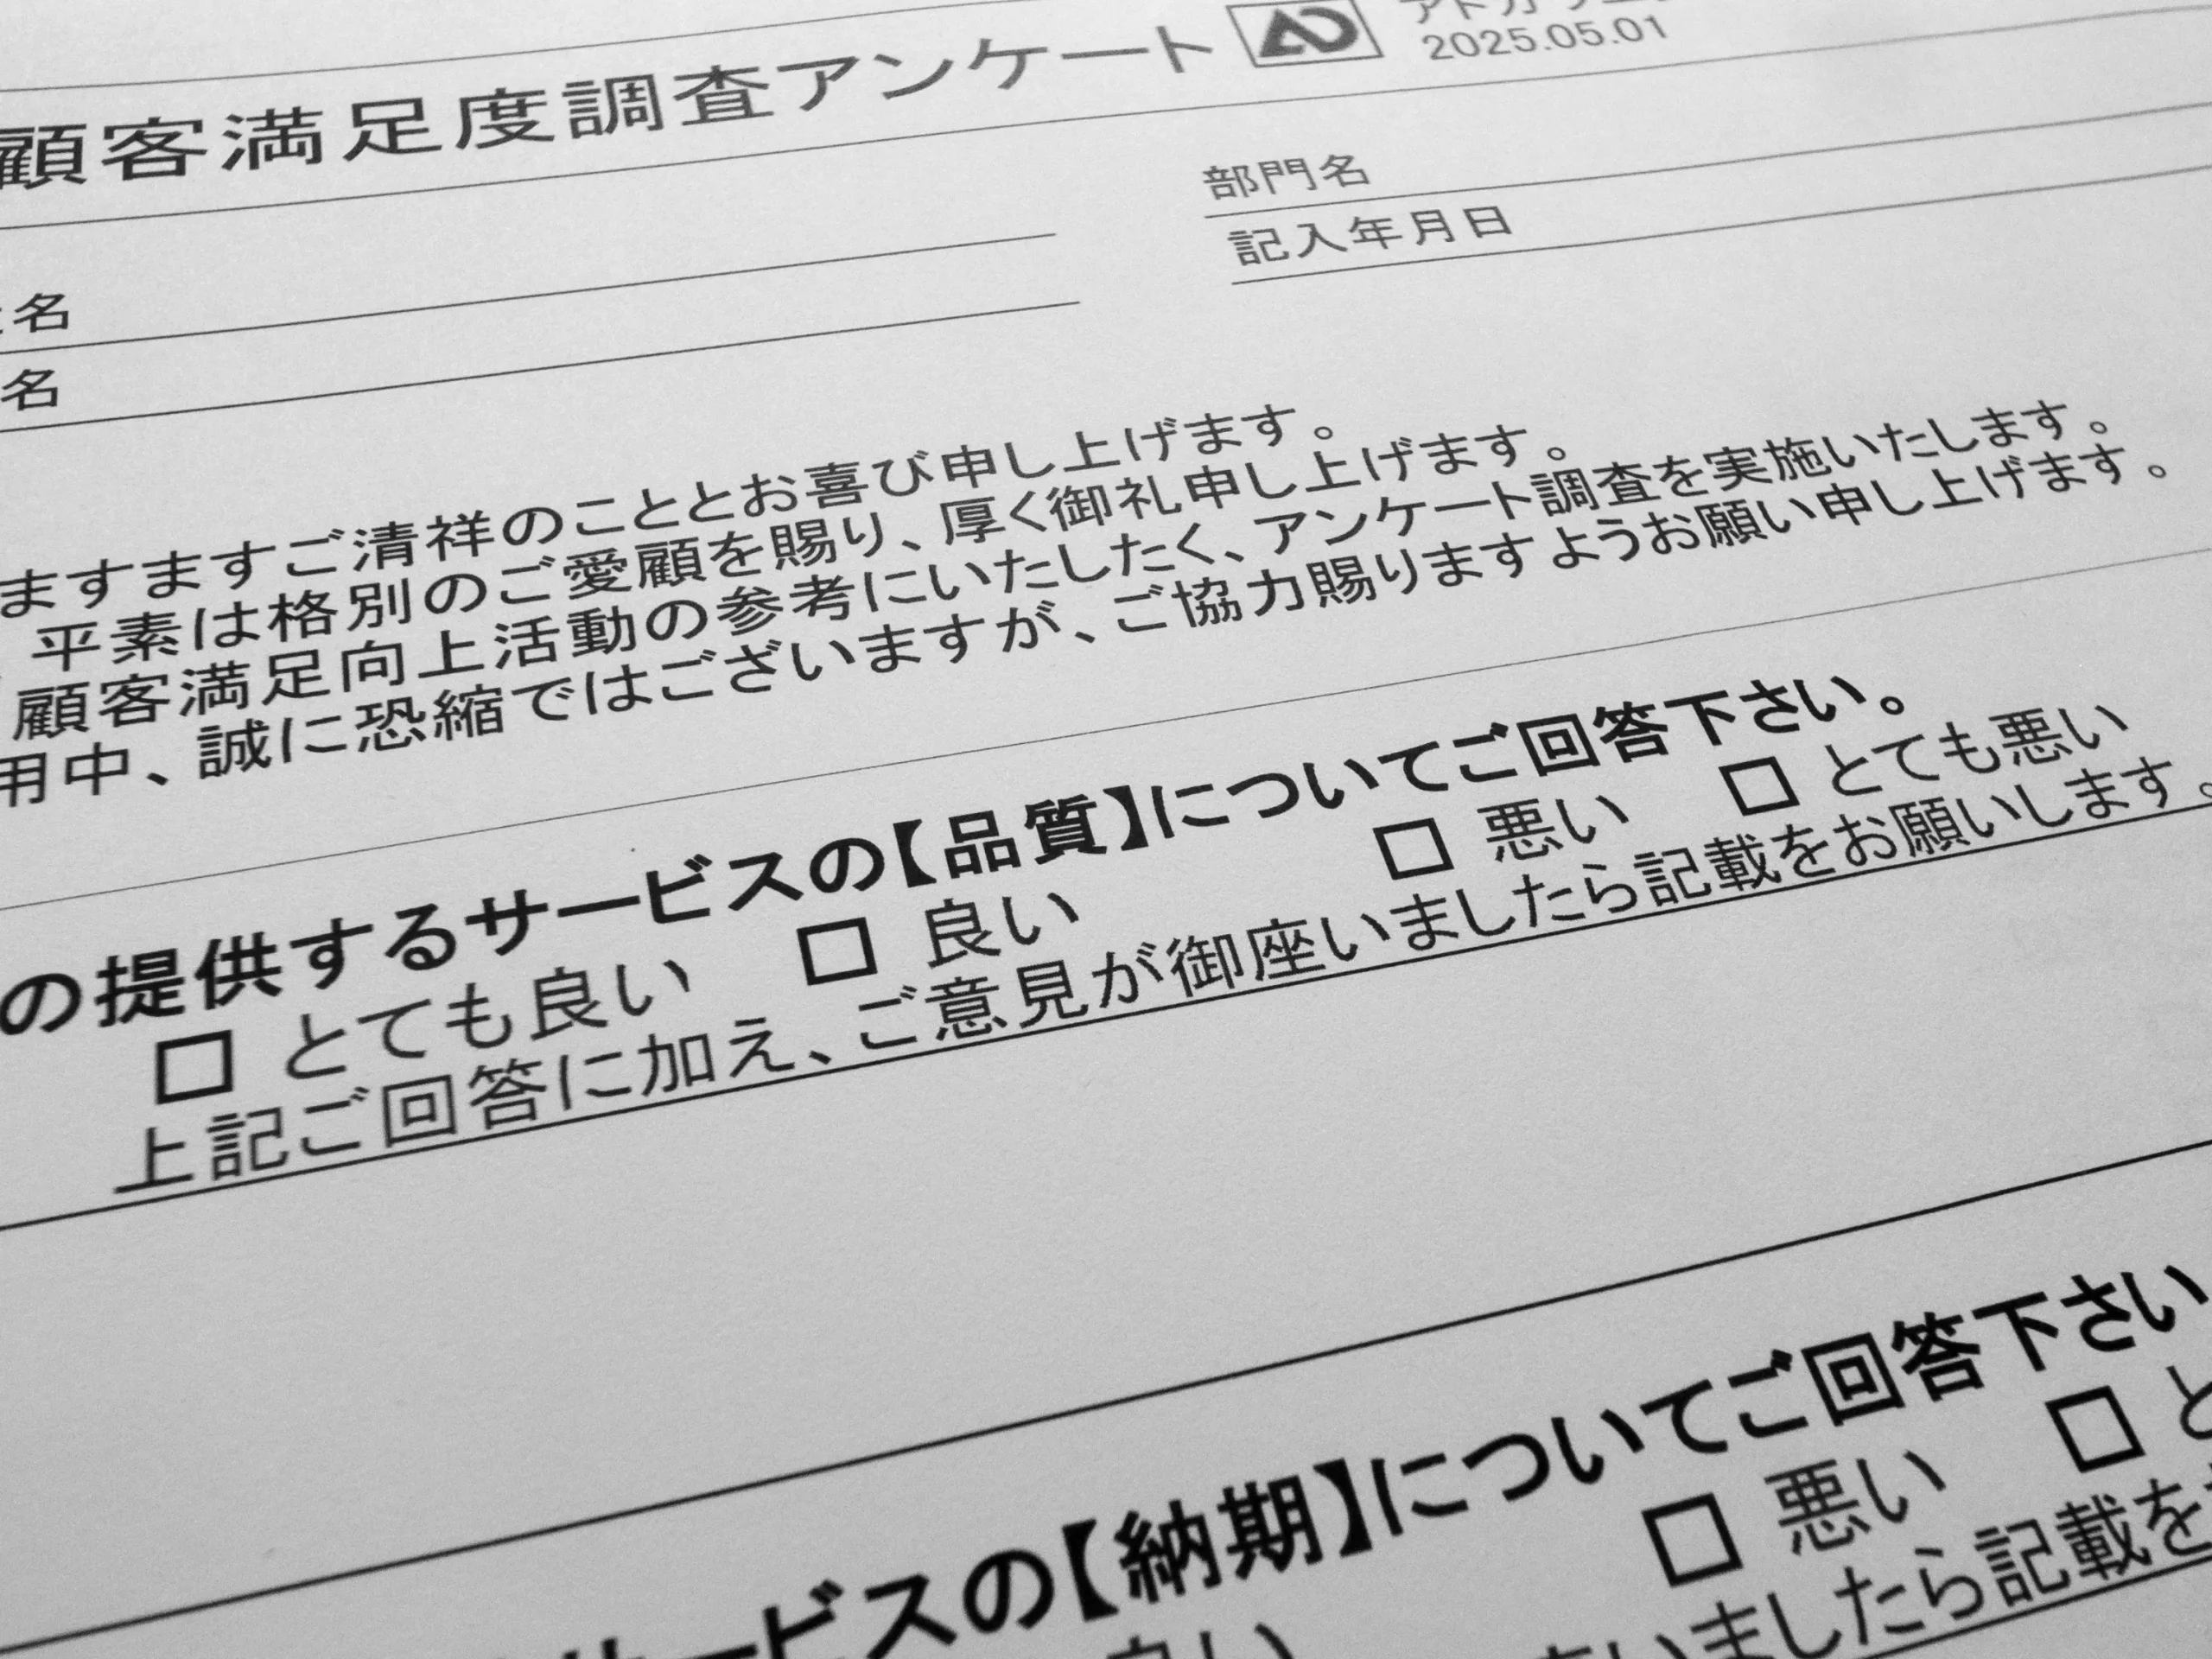 顧客満足度調査アンケート
2025.05.01
部門名
記入年月日
名
名
ますますご清祥のこととお喜び申し上げます。
平素は格別のご愛顧を賜り、厚く御礼申し上げます。
顧客満足向上活動の参考にいたしたく、アンケート調査を実施いたします。
用中、誠に恐縮ではございますが、ご協力賜りますようお願い申し上げます。
の提供するサービスの【品質】についてご回答下さい。
□ とても良い □ 良い □ 悪い □ とても悪い
上記ご回答に加え、ご意見が御座いましたら記載をお願いします。
サービスの【納期】についてご回答下さい
良い □ 悪い □ と
いましたら記載を